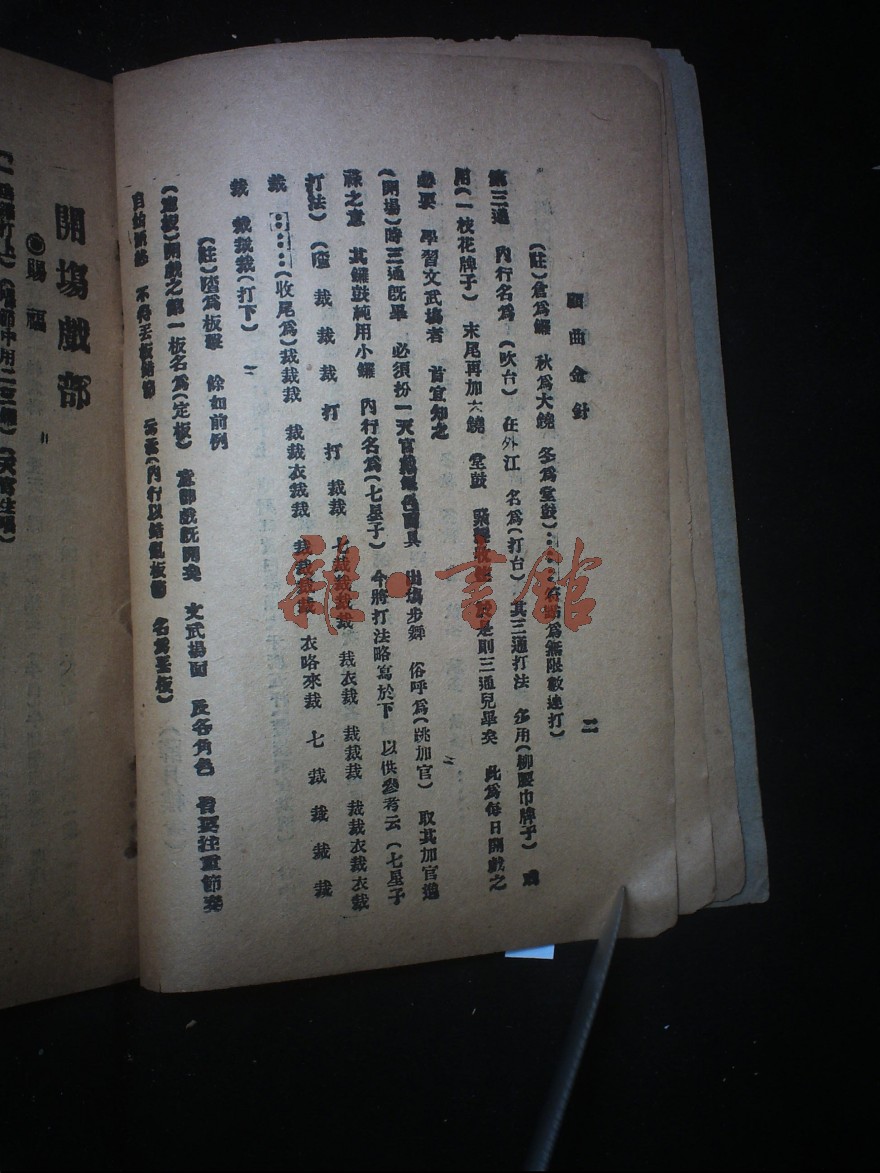 顧曲金針
二
(註)倉爲鑼 秋爲大鐃 冬爲堂鼓)::::符號爲無限數連打)
第三通 內行名爲(吹台) 在外江 名爲(打台) 其三通打法 多用(柳腰巾牌子) 或
用(一枝花牌子) 末尾再加大鐃 堂鼓 是則三通兒畢矣 此爲每日開戲之
必要 學習文武塲者 首宜知之
(開塲)時三通旣畢 必須扮一天官戴 色面具 出塲步舞 俗呼爲(跳加官) 取其加官進
祿之意 其鑼鼓純用小鑼 內行名爲(七星子) 今將打法略寫於下 以供參考云(七星子
打法)(喳 裁 裁 裁 打 打 裁裁 七裁裁裁裁 裁衣裁 裁裁裁 裁衣裁衣裁
裁::::(收尾爲)裁裁裁 裁裁衣裁裁 裁裁裁裁 衣咯來裁 七 裁 裁 裁 裁
裁 裁裁裁(打下)
(註)喳爲板擊 餘如前例
(定板)開戲之第一板名爲(定板) 戲旣開矣 文武塲面 及各角色 皆要注重節奏
不得丟板 (內行以錯亂板 名爲丟板)
開塲戲部
賜福
雜·書館